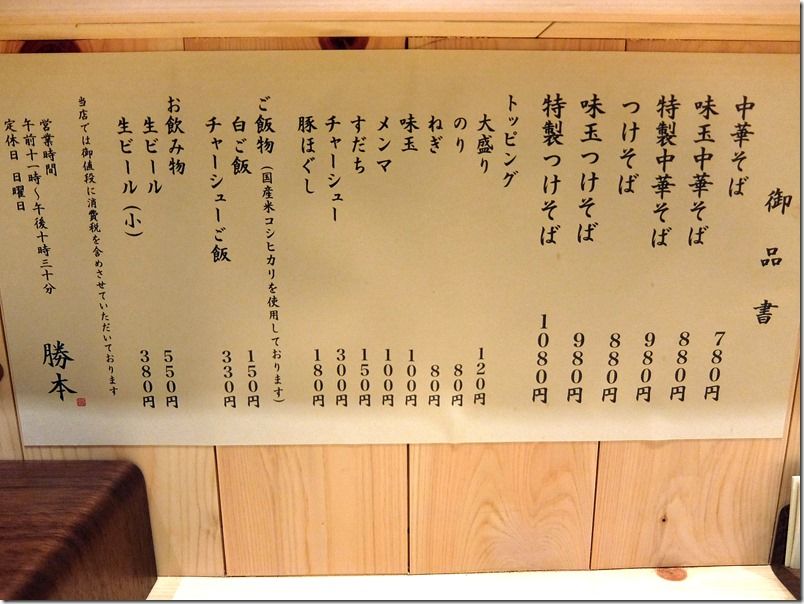 御品書
中華そば 780円
味玉中華そば 880円
特製中華そば 980円
つけそば 880円
味玉つけそば 980円
特製つけそば 1080円
トッピング
大盛り 120円
のり 80円
ねぎ 80円
味玉 100円
メンマ 100円
すだち 150円
チャーシュー 300円
豚ほぐし 180円
ご飯物(国産米コシヒカリを使用しております)
白ご飯 150円
チャーシューご飯 330円
お飲み物
生ビール 550円
生ビール(小) 380円
当店では御値段に消費税を含めさせていただいております
営業時間
午前十一時～午後十時三十分
定休日 日曜日
勝本